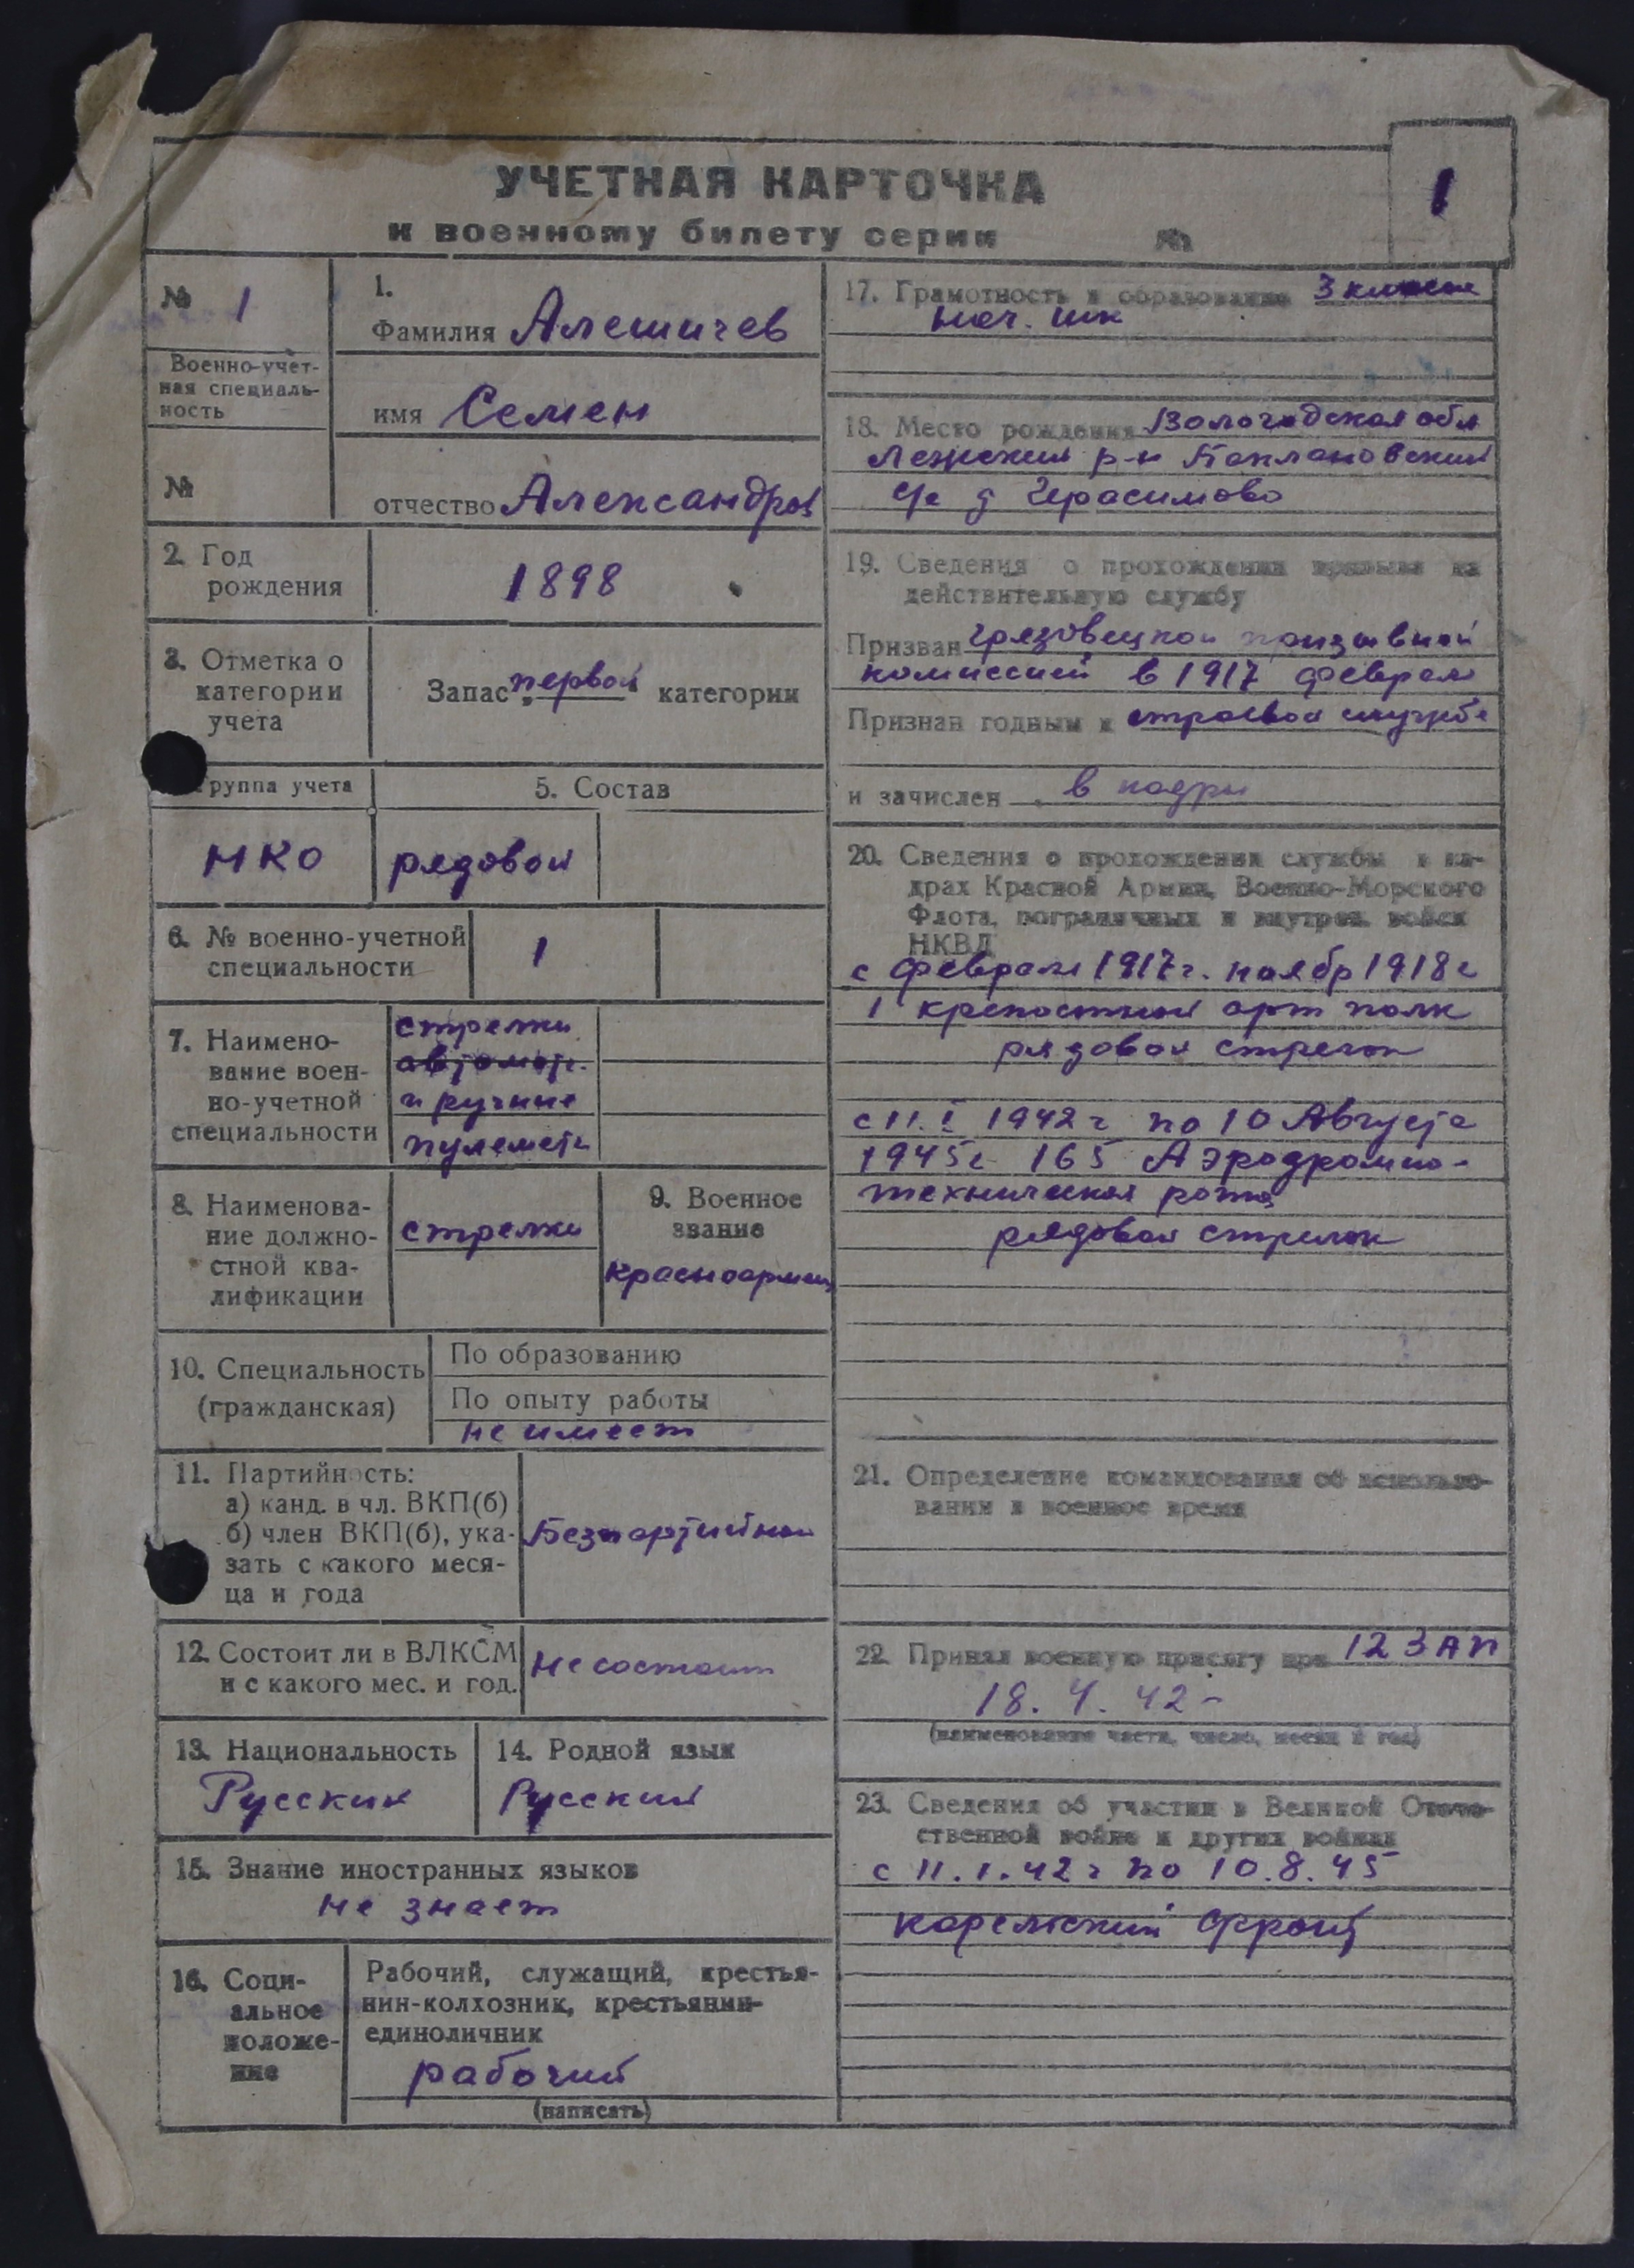 УЧЕТНАЯ КАРТОЧКА
к военному билету серии №
1
№ 1
Военно-учет-
ная специаль-
ность
№
1.
Фамилия Алешичев
имя Семен
отчество Александров
2. Год
рождения
1898
3. Отметка о
категории
учета
Запас первой категории
группа учета
5. Состав
НКО
рядовой
6. № военно-учетной
специальности
1
7. Наимено-
вание воен-
но-учетной
специальности
стрелки
автомат.
и ручные
пулеметы
8. Наименова-
ние должно-
стной ква-
лификации
стрелки
9. Военное
звание
красноармеец
10. Специальность
(гражданская)
По образованию
По опыту работы
не имеет
11. Партийность:
а) канд. в чл. ВКП(б)
б) член ВКП(б), ука-
зать с какого меся-
ца и года
Безпартийный
12. Состоит ли в ВЛКСМ
и с какого мес. и год.
не состоит
13. Национальность
Русский
14. Родной язык
Русский
15. Знание иностранных языков
не знает
16. Соци-
альное
положе-
ние
Рабочий, служащий, крестья-
нин-колхозник, крестьянин-
единоличник
рабочий
(написать)
17. Грамотность и образование 3 класса
нач. шк
18. Место рождения Вологодская обл
Лежский р-н Баклановский
с/с д Герасимово
19. Сведения о прохождении призыва на
действительную службу
Призван Грязовецкой призывной
комиссией в 1917 феврале
Признан годным к строевой службе
и зачислен в кадры
20. Сведения о прохождении службы в ка-
драх Красной Армии, Военно-Морского
Флота, пограничных и внутрен. войск
НКВД
с февраля 1917 г. ноябр 1918 г
1 крепостной арт полк
рядовой стрелок
с 11.I 1942 г по 10 Августа
1945 г 165 Аэродромно-
техническая рота
рядовой стрелок
21. Определение командования об использо-
вании в военное время
22. Принял военную присягу при 12 ЗАП
18. 4. 42-
(наименование части, число, месяц и год)
23. Сведения об участии в Великой Отече-
ственной войне и других войнах
с 11.1.42 г по 10.8.45
карельский фронт